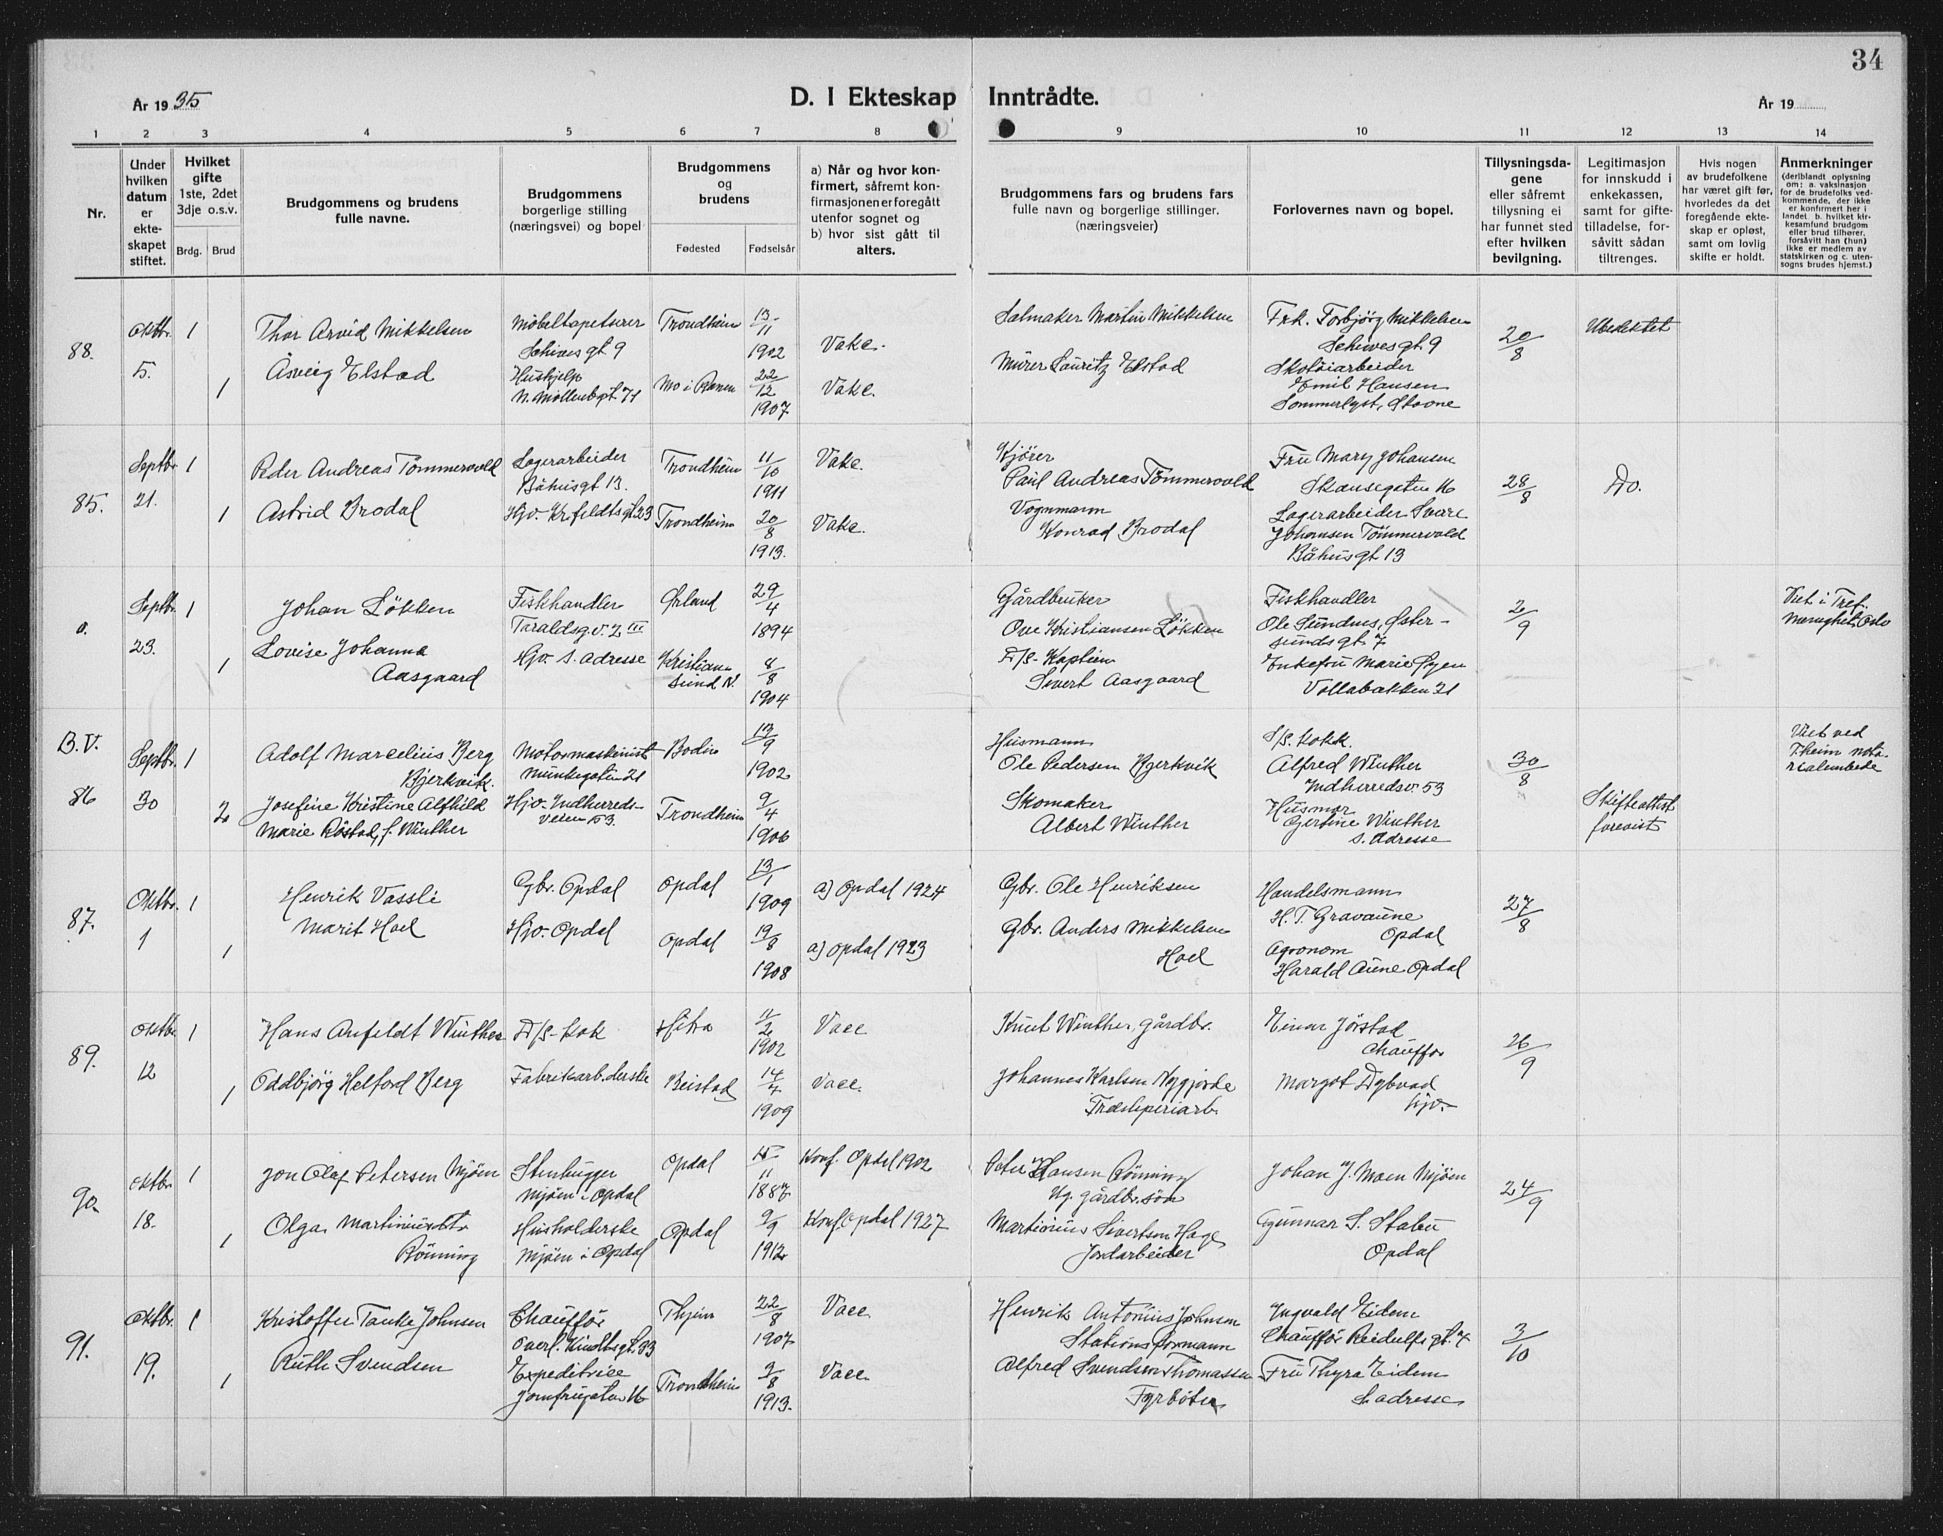 34
År 1935
D. I Ekteskap Inntrådte.
År 19
1 2 3 4 5 6 7 8 9 10 11 12 13 14
Nr.
Under
hvilken
datum
er
ekte-
skapet
stiftet.
Hvilket
gifte
1ste, 2det
3dje o.s.v.
Brdg. Brud
Brudgommens og brudens
fulle navne.
Brudgommens
borgerlige stilling
(næringsvei) og bopel
Brudgommens
og
brudens
Fødested Fødselsår
a) Når og hvor kon-
firmert, såfremt kon-
firmasjonen er foregått
utenfor sognet og
b) hvor sist gått til
alters.
Brudgommens fars og brudens fars
fulle navn og borgerlige stillinger.
(næringsveier)
Forlovernes navn og bopel.
Tillysningsda-
gene
eller såfremt
tillysning ei
har funnet sted
efter hvilken
bevilgning.
Legitimasjon
for innskudd i
enkekassen,
samt for gifte-
tilladelse, for-
såvitt sådan
tiltrenges.
Hvis nogen
av brudefolkene
har været gift før,
hvorledes da det
foregående ekte-
skap er opløst,
samt om lovlig
skifte er holdt.
Anmerkninger
(deriblandt oplysning
om: a. vaksinasjon
for de brudefolks ved-
kommende, der ikke
er konfirmert her i
landet. b. hvilket kir-
kesamfund brudgom
eller brud tilhører,
forsåvitt han (hun)
ikke er medlem av
statskirken og c. uten-
sogns brudes hjemst.)
88.
Oktbr.
5.
1
1
Thor Arvid Mikkelsen
Åsveig Elstad
Møbeltapetserer
Schives gt. 9
Hushjelp
N. Møllenbgt. 71
Trondheim
Mo i Ranen
13/11
1902
22/12
1907
Vakc.
Vakc.
Salmaker Martin Mikkelsen
Murer Lauritz Elstad
Frk. Torbjørg Mikkelsen
Schives gt. 9
Skotøiarbeider
Emil Hansen
Sommerlyst, Skovne
20/8
Ubeheftet
85.
Septbr.
21.
1
1
Peder Andreas Tømmervold
Astrid Brodal
Lagerarbeider
Båhus gt 13.
Hjv. Krfeldts gt. 23
Trondheim
Trondheim
11/10
1911
20/8
1913.
Vakc.
Vakc.
Kjører
Paul Andreas Tømmervold
Vognmann
Konrad Brodal
Fru Mary Johansen
Skansegaten 16
Lagerarbeider Sverre
Johansen Tømmervold
Båhus gt 13
28/8
Do.
o.
Septbr.
23.
1
1
Johan Løkken
Lovise Johanna
Aasgaard
Fiskhandler
Taraldsg.v. 2 III
Hjv. s. adresse
Ørland
Kristian-
sund N.
29/4
1894
8/8
1904
Gårdbruker
Ove Kristiansen Løkken
D/S- Kaptein
Sivert Aasgaard
Fiskhandler
Ole Sundnes, Øster-
sunds gt. 7
Enkefru Marie Øyen
Vollabakken 21
2/9
Viet i Tref.
Menighet, Oslo
B.V.
86
Septbr.
30
1
2
Adolf Marcelius Berg
Bjerkvik.
Josefine Kristine Alfhild
Marie Røstad, f. Winther
Motormaskinist
Munkegaten 21
Hjv. Indherreds-
veien 53.
Bodin
Trondheim
13/9
1902
9/4
1906
Husmann
Ole Pedersen Bjerkvik
Skomaker
Albert Winther
S/S. kokk.
Alfred Winther
Indherredsv. 53
Husmor
Gertine Winther
s. Adresse
30/8
Skifteattest
forevist
Viet ved
T.heim nota-
rialembede
87.
Oktbr.
1
1
1
Henrik Vassli
Marit Hoel
Gbr. Opdal
Hjv. Opdal
Opdal
Opdal
13/1
1909
19/8
1908
a) Opdal 1924
a) Opdal 1923
Gbr. Ole Henriksen
Gbr. Anders Mikkelsen
Hoel
Handelsmann
H. T. Gravaune
Opdal
Agronom
Harald Aune Opdal
27/8
89.
Oktbr.
12
1
1
Hans Anfeldt Winther
Oddbjørg Helford Berg
D/S- kok
Fabrikarb.derske
Hitra
Beistad
1/2
1902
14/4
1909
Vacc
Vacc.
Knut Winther, gårdbr.
Johannes Karlsen Nygjorde
Træsliperiarb.
Einar Jørstad
Chauffør
Margot Dybvad
hjv.
26/9
90.
Oktbr.
18.
1
1
Jon Olaf Petersen Mjøen
Olga Martiniusdtr
Rønning
Stenhugger
Mjøen i Opdal
Husholderske
Mjøen i Opdal
Opdal
Opdal
15/11
1887
9/9
1912
Konf. Opdal 1902
Konf. Opdal 1927
Peter Hansen Rønning
Ug. gårdbr.søn
Martinius Sivertsen Hage
Jordarbeider
Johan J. Moen Mjøen
Gunnar S. Stabu
Opdal
24/9
91.
Oktbr.
19.
1
1
Kristoffer Tanke Johnsen
Ruth Svendsen
Chauffør
Overl. Kindtsgt. 33
Expeditrice
Jomfrugaten 16
Thjem
Trondheim
22/8
1907
3/8
1913.
Vacc
Vacc.
Henrik Antonius Johnsen
Stationsformann
Alfred Svendsen Thomassen
Fyrbøter
Ingvald Eidem
Chauffør Reidulfs gt. 7
Fru Thyra Eidem
s. adresse
3/10